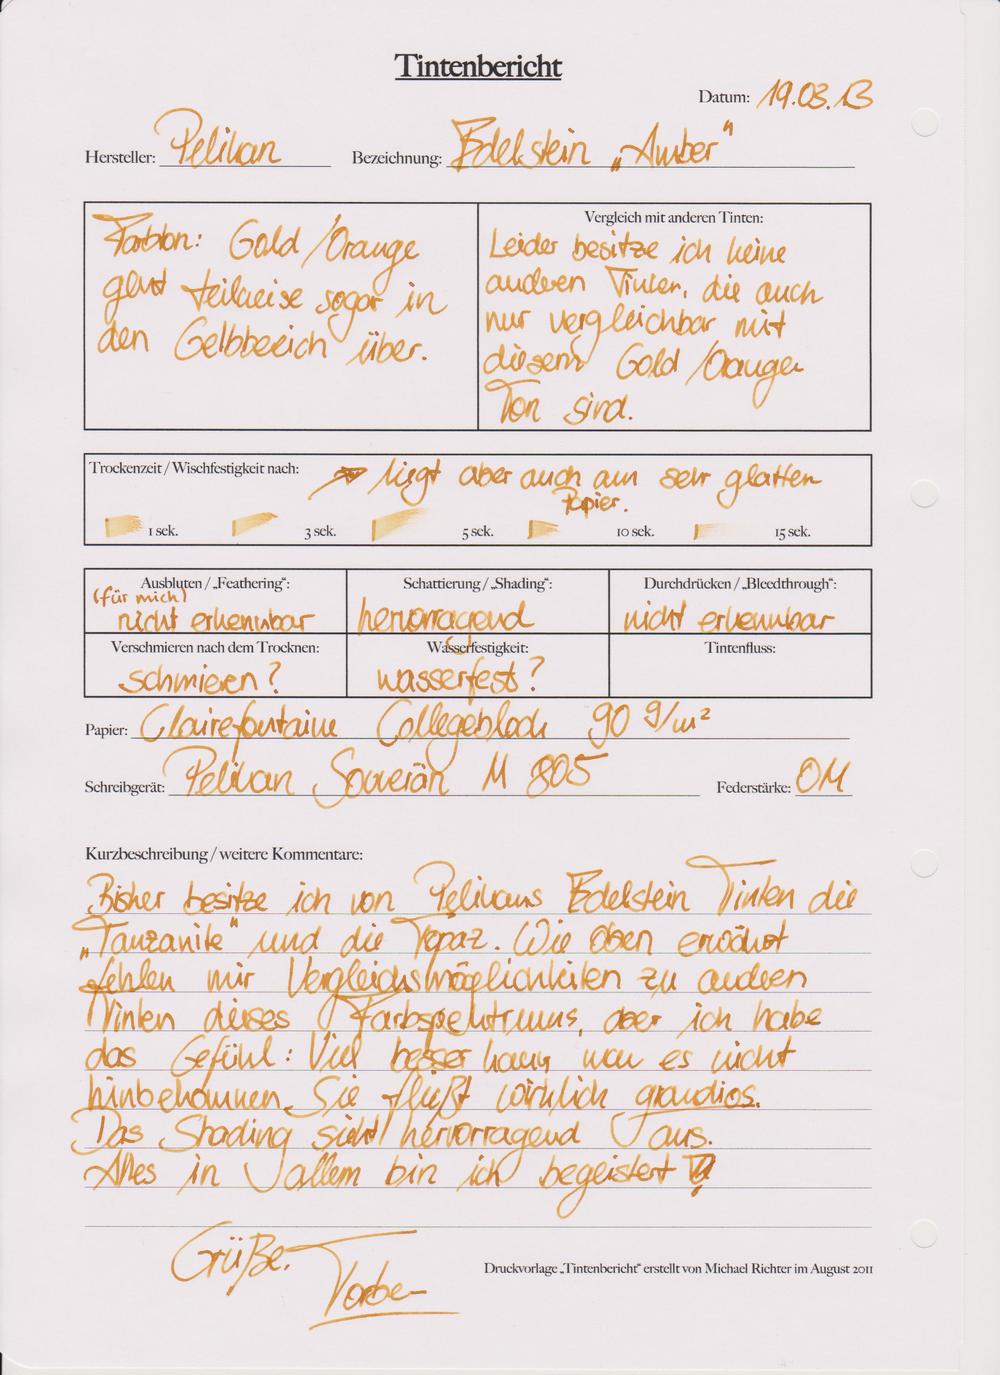 Tintenbericht
Datum: 19.03.13
Hersteller: Pelikan Bezeichnung: Edelstein „Amber“
Farbton: Gold/Orange
geht teilweise sogar in
den Gelbbereich über.
Vergleich mit anderen Tinten:
Leider besitze ich keine
anderen Tinten, die auch
nur vergleichbar mit
diesem Gold/Orangen
Ton sind.
Trockenzeit / Wischfestigkeit nach: → liegt aber auch am sehr glatten
Papier.
1 sek. 3 sek. 5 sek. 10 sek. 15 sek.
Ausbluten / „Feathering“:
(für mich)
nicht erkennbar
Schattierung / „Shading“:
hervorragend
Durchdrücken / „Bleedthrough“:
nicht erkennbar
Verschmieren nach dem Trocknen:
schmieren?
Wasserfestigkeit:
wasserfest?
Tintenfluss:
Papier: Clairefontaine Collegeblock 90 g/m²
Schreibgerät: Pelikan Souverän M 805 Federstärke: OM
Kurzbeschreibung / weitere Kommentare:
Bisher besitze ich von Pelikans Edelstein Tinten die
„Tanzanite“ und die Topaz. Wie oben erwähnt
fehlen mir Vergleichsmöglichkeiten zu anderen
Tinten dieses Farbspektrums, aber ich habe
das Gefühl: Viel besser kann man es nicht
hinbekommen. Sie fließt wirklich grandios.
Das Shading sieht hervorragend aus.
Alles in allem bin ich begeistert!!
Grüße,
Torben
Druckvorlage „Tintenbericht“ erstellt von Michael Richter im August 2011